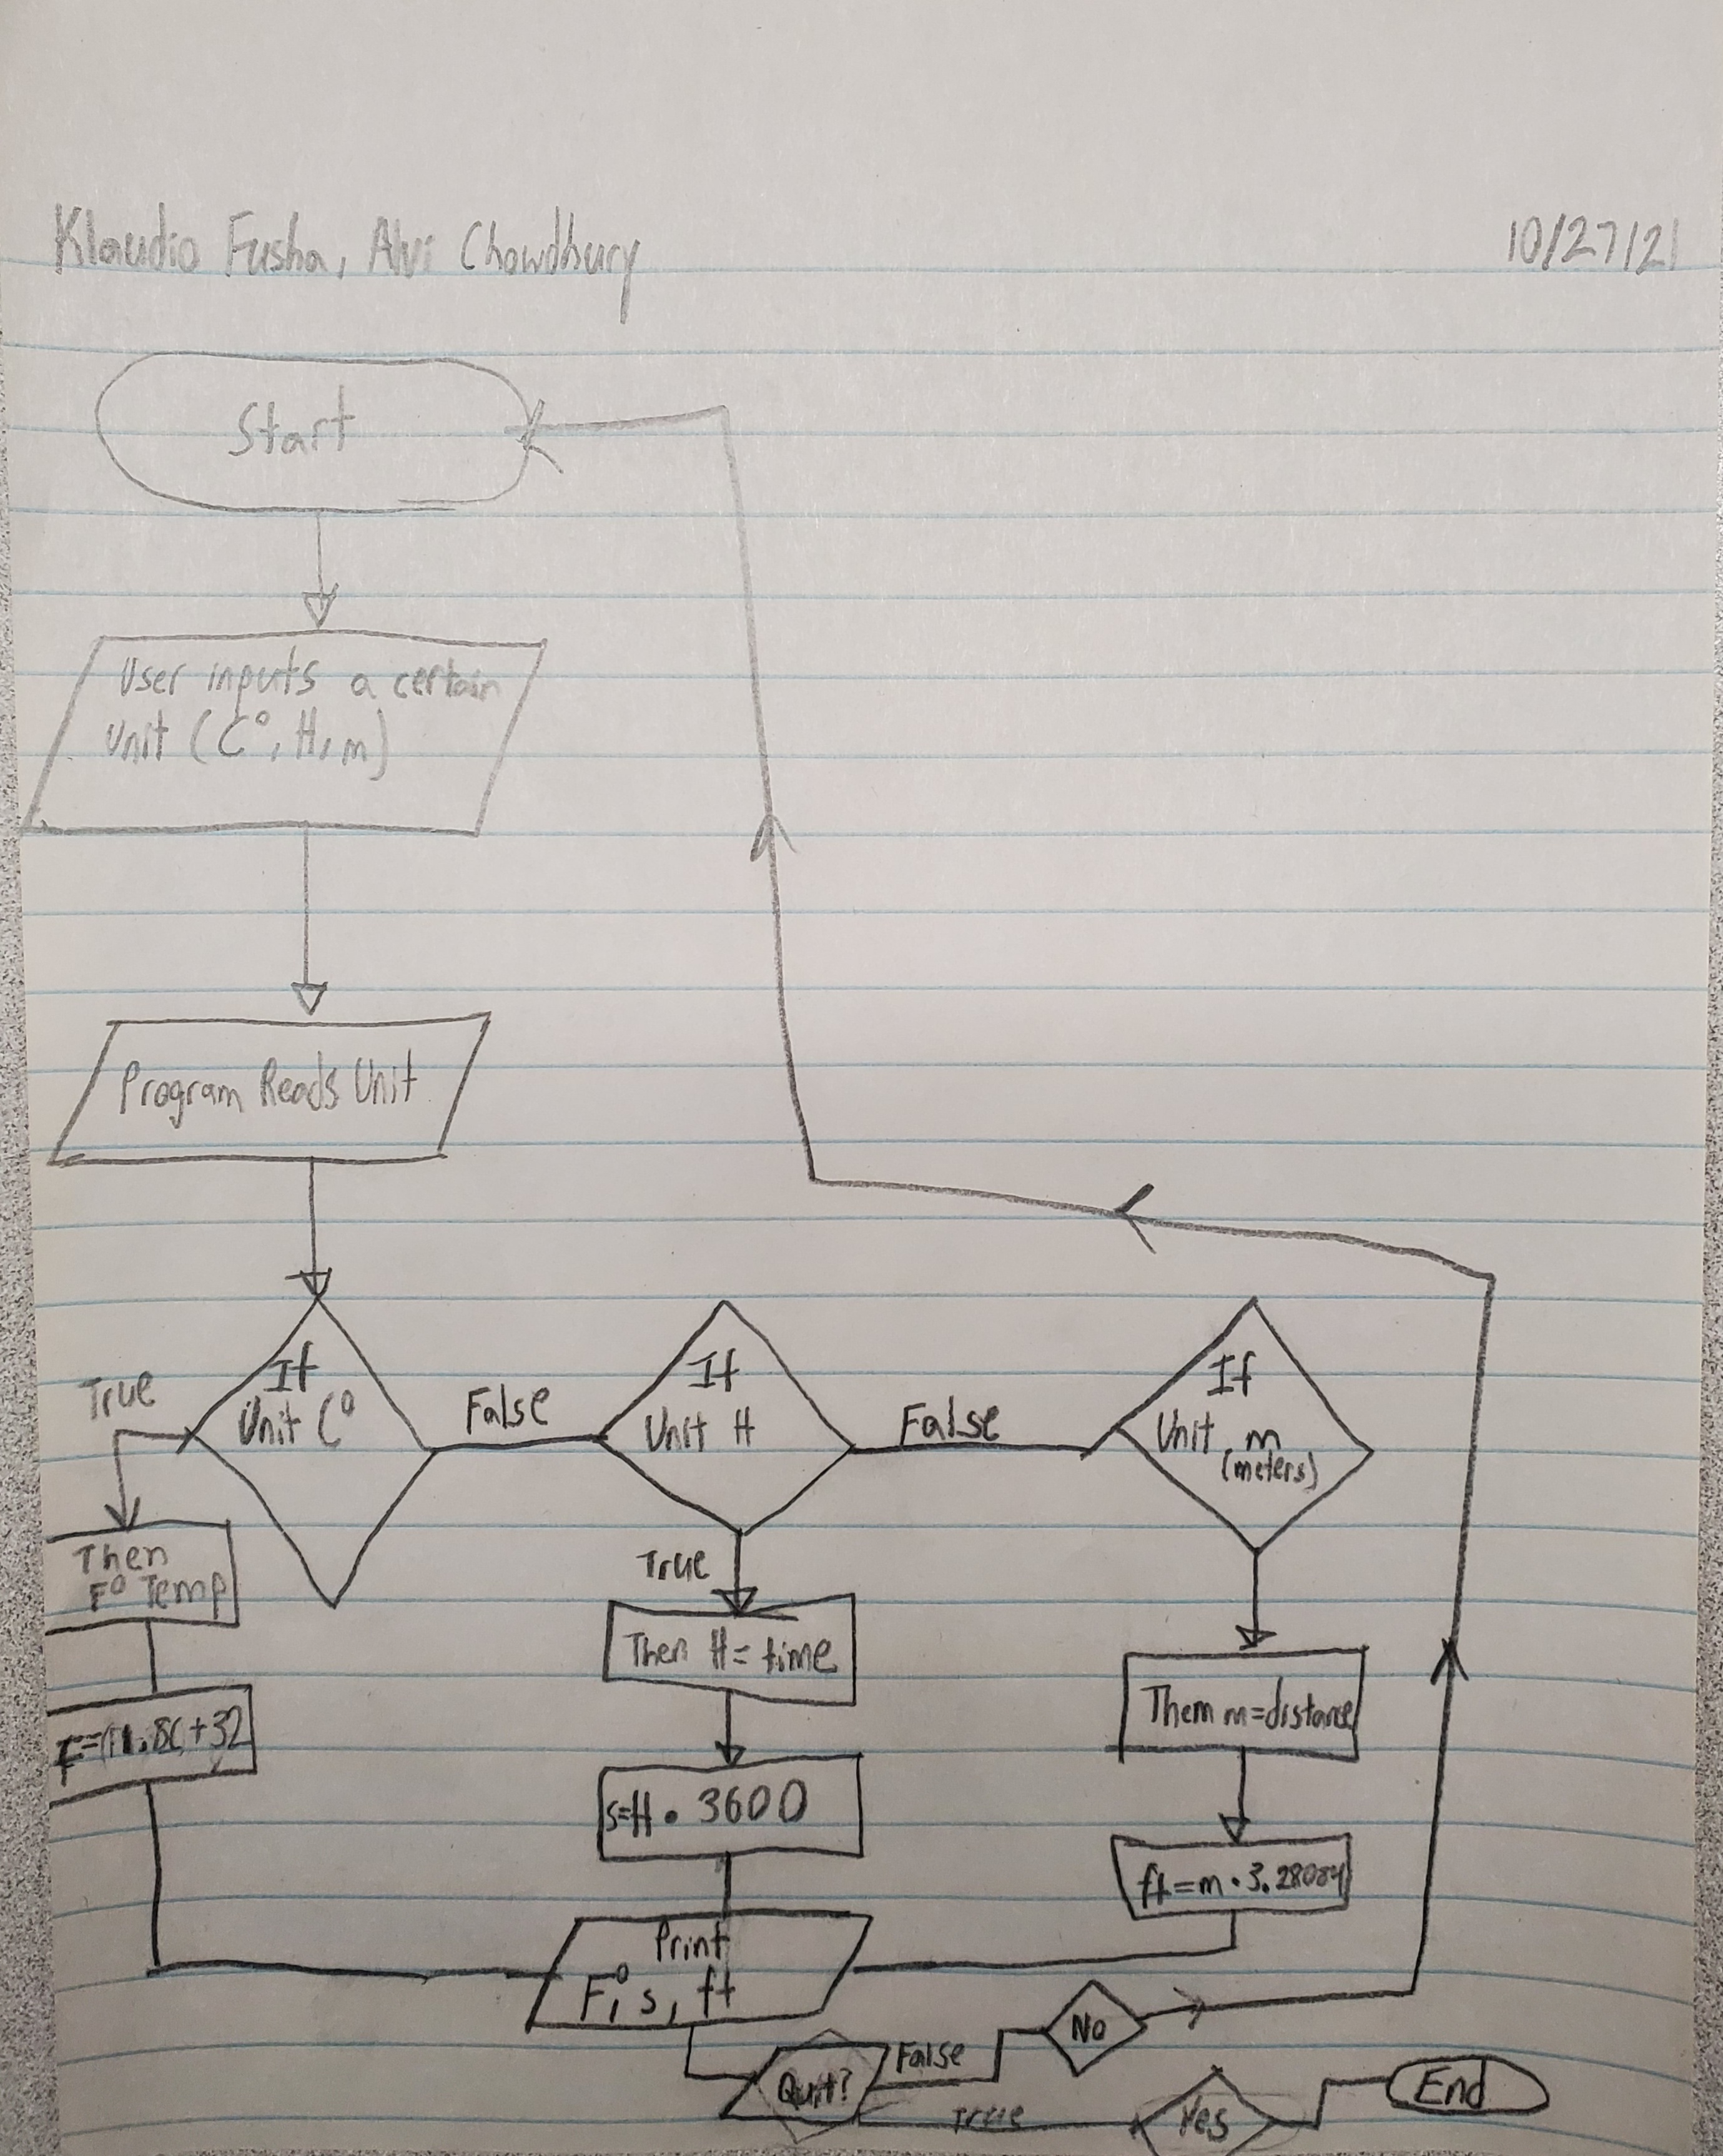 Klaudio Fusha, Alvi Chowdhury
10/27/21
Start
User inputs a certain
Unit (C°, H, m)
Program Reads Unit
If
Unit C°
True
False
If
Unit H
False
If
Unit m
(meters)
Then
F° Temp
True
Then H = time
Them m=distance
+32
s=H • 3600
ft=m • 3.28084
Print
F°, s, ft
Quit?
False
No
True
Yes
End